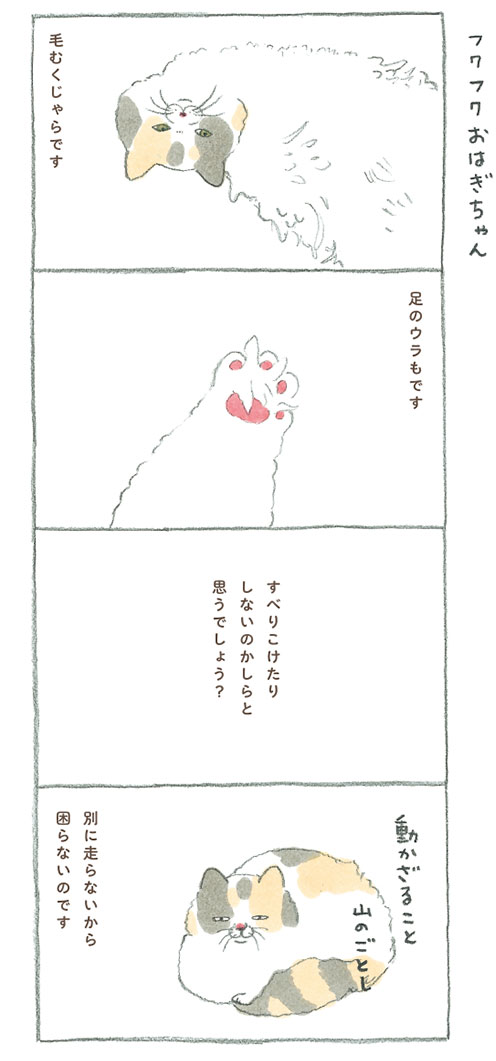 フワフワおはぎちゃん
毛むくじゃらです
足のウラもです
すべりこけたり
しないのかしらと
思うでしょう？
動かざること
山のごとし
別に走らないから
困らないのです